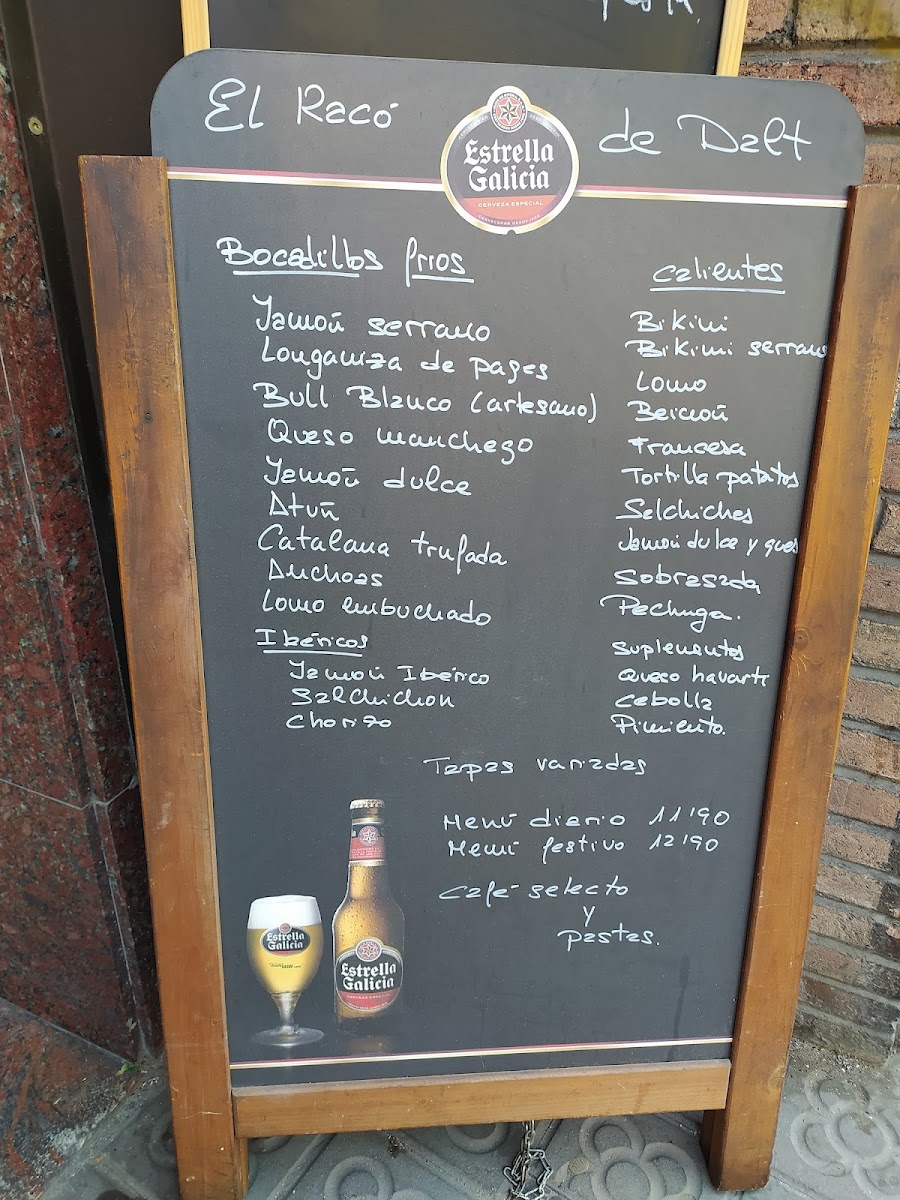 El Racó de Dalt
Estrella
Galicia
CERVEZA ESPECIAL
Bocadillos frios
Jamoñ serrano
Longaniza de pages
Bull Blanco (artesano)
Queso manchego
Jamoñ dulce
Atuñ
Catalana trufada
Anchoas
Lomo embuchado
Ibéricos
Jamoñ Ibérico
Salchichon
Chorizo
calientes
Bikini
Bikini serrano
Lomo
Beicoñ
Francesa
Tortilla patatas
Salchichas
Jamoñ dulce y ques
Sobrasada
Pechuga.
suplementos
queso havarti
cebolla
Pimiento.
Tapas variadas
Menú diario 11'90
Menú festivo 12'90
Café selecto
y
pastas.
Estrella
Galicia
Estrella
Galicia